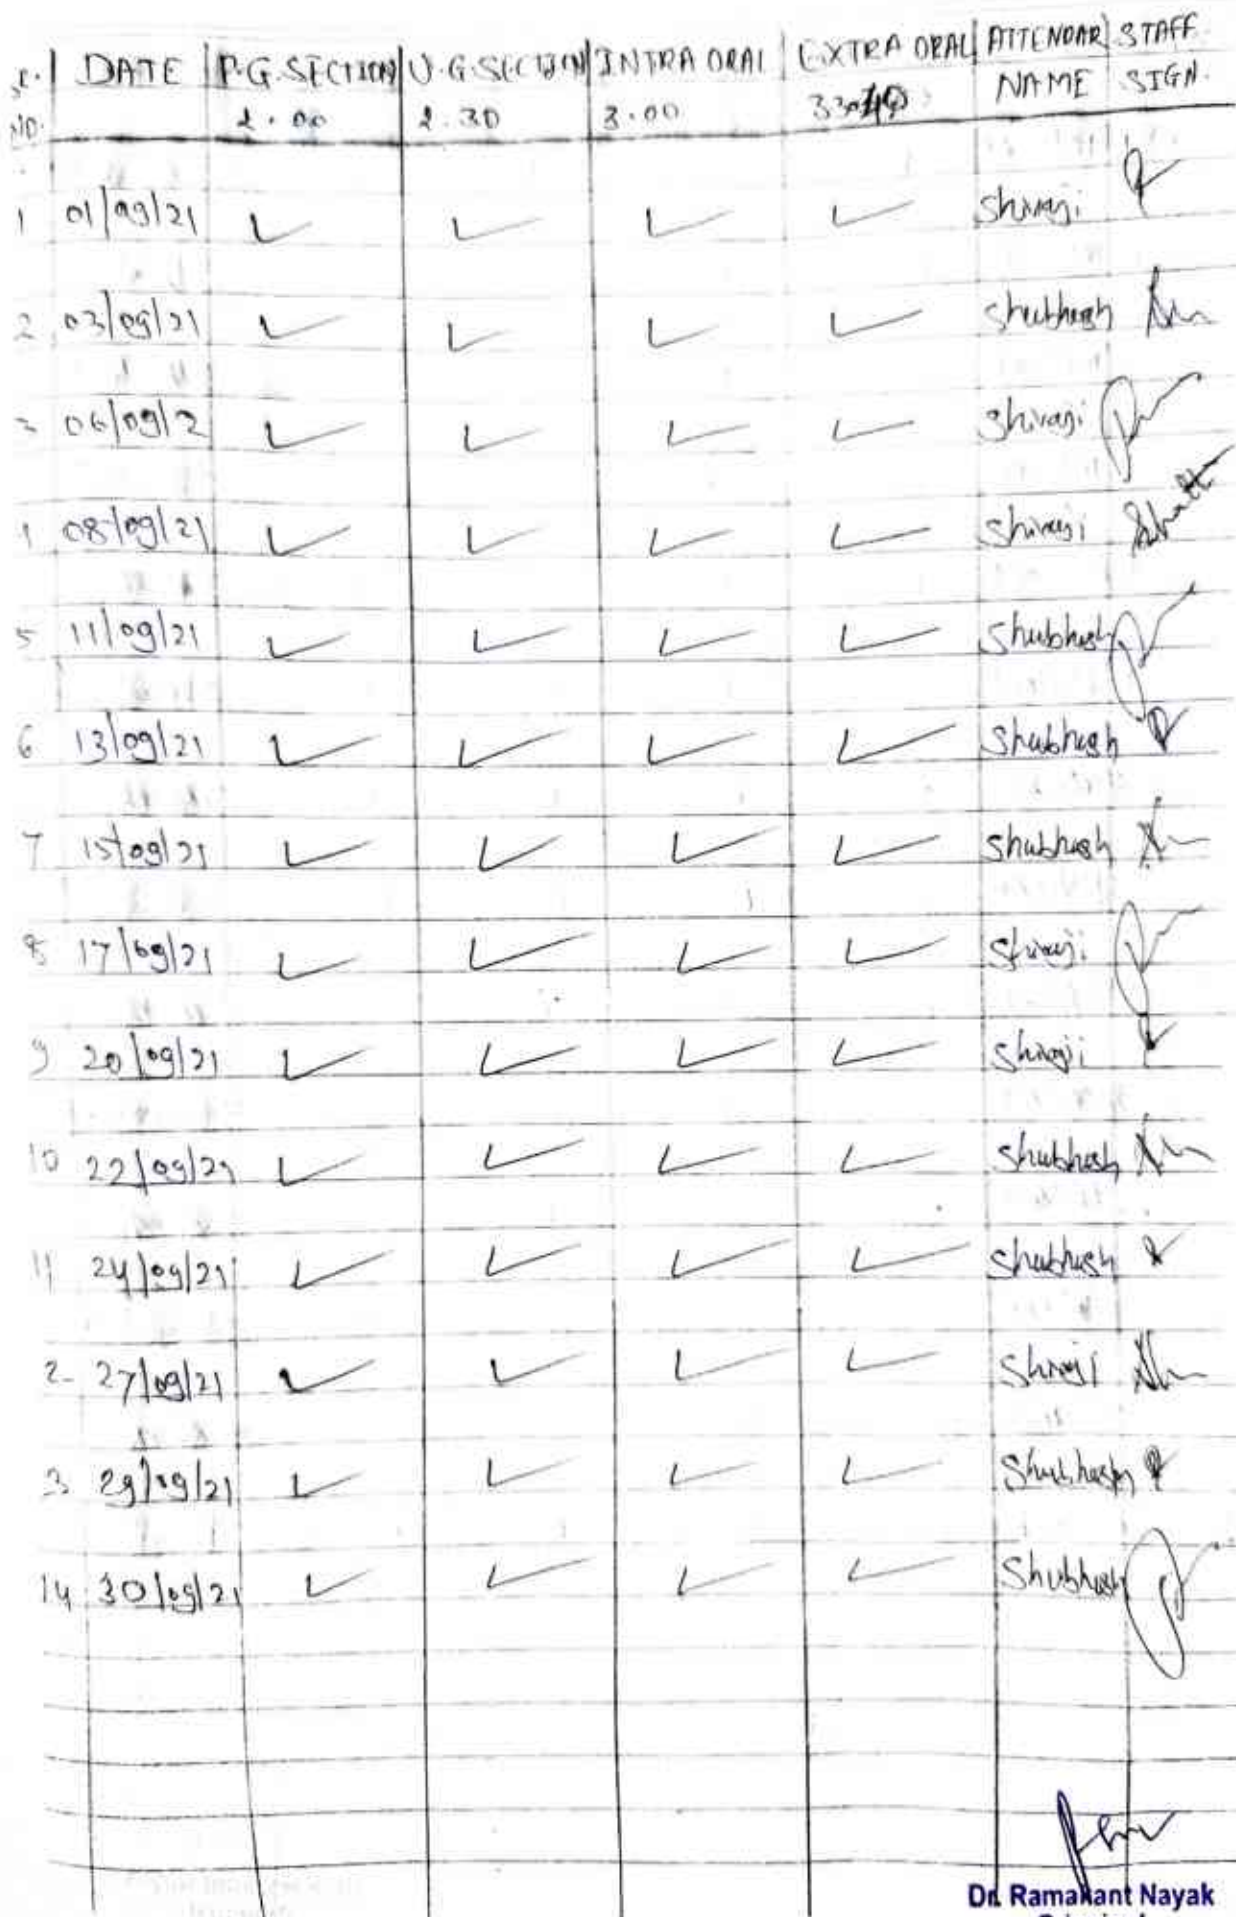 DATE P.G.SECTION U.G.SECTION INTRA ORAL EXTRA ORAL ATTENDAR STAFF
NO. 2.00 2.30 3.00 NAME SIGN.
1 01/09/21 ✓ ✓ ✓ ✓ Shivaji
2 03/09/21 ✓ ✓ ✓ ✓ Shubhash
3 06/09/2 ✓ ✓ ✓ ✓ Shivaji
08/09/21 ✓ ✓ ✓ ✓ Shivaji
5 11/09/21 ✓ ✓ ✓ ✓ Shubhash
6 13/09/21 ✓ ✓ ✓ ✓ Shubhash
7 15/09/21 ✓ ✓ ✓ ✓ Shubhash
8 17/09/21 ✓ ✓ ✓ ✓ Shivaji
9 20/09/21 ✓ ✓ ✓ ✓ Shivaji
10 22/09/21 ✓ ✓ ✓ ✓ Shubhash
11 24/09/21 ✓ ✓ ✓ ✓ Shubhash
2 27/09/21 ✓ ✓ ✓ ✓ Shivaji
3 29/09/21 ✓ ✓ ✓ ✓ Shubhash
14 30/09/21 ✓ ✓ ✓ ✓ Shubhash
Dr. Ramakant Nayak